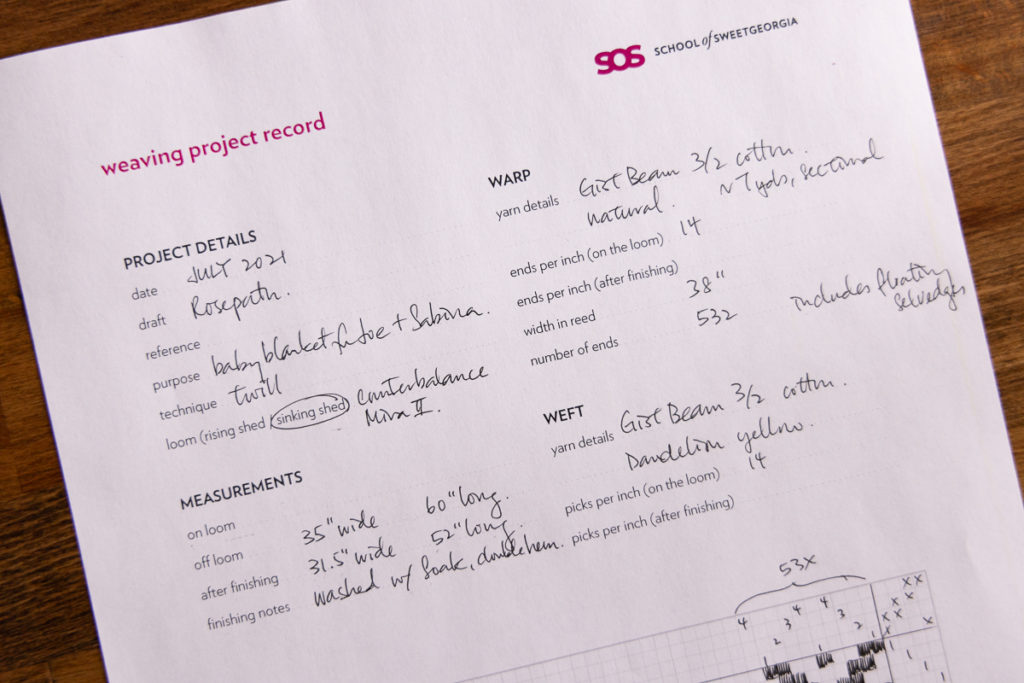 SOS SCHOOL of SWEETGEORGIA
weaving project record
PROJECT DETAILS
date JULY 2021
draft Rosepath.
reference
purpose baby blanket for Joe + Sabrina.
technique twill
loom (rising shed / sinking shed) Counterbalance
Mira II.
MEASUREMENTS
on loom
off loom 35" wide 60" long.
after finishing 31.5" wide 52" long.
finishing notes washed w/ Soak, double hem.
WARP
yarn details Gist Beam 3/2 cotton.
natural. ~7yds, sectional
ends per inch (on the loom) 14
ends per inch (after finishing)
width in reed 38"
number of ends 532 includes floating
selvedges
WEFT
yarn details Gist Beam 3/2 cotton.
Dandelion yellow.
picks per inch (on the loom) 14
picks per inch (after finishing)
53x
4 4 4
3 3
2 2
1 1